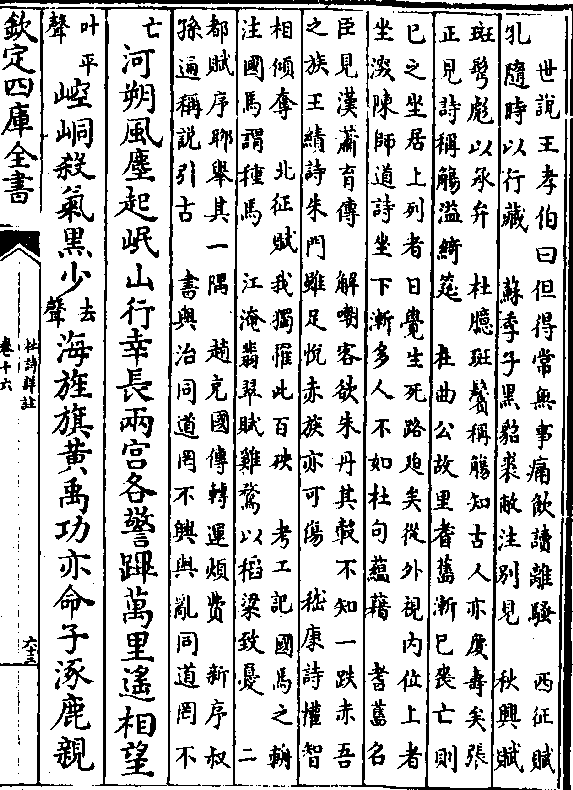 世說王孝伯曰但得常無事痛飲讀離騷　西征賦
孔隨時以行藏　蘇季子黑貂裘敝注別見　秋興賦
斑鬢髟以承弁　杜臆斑鬢稱觴知古人亦慶壽矣張
正見詩稱觴溢綺筵　杜曲公故里耆舊漸已喪亡則
已之坐居上列者日覺生死路廹矣從外視内位上者
坐深陳師道詩坐下漸多人不如杜句蘊藉　耆舊名
臣見漢蕭育傳　解嘲客欲朱丹其轂不知一跌赤吾
之族王績詩朱門雖足悅赤族亦可傷　嵇康詩權智
相傾奪　北征賦我獨罹此百殃　考工記國馬之輈
注國馬謂種馬　江淹翡翠賦雞鶩以稻粱致憂　二
都賦序聊舉其一隅　趙充國傳轉運煩費　新序叔
孫遍稱說引古　書與治同道罔不興與亂同道罔不
亡
河朔風塵起岷山行幸長兩宫各警蹕萬里遙相望
叶平聲崆峒殺氣黑少去聲海旌旗黄禹功亦命子涿鹿親
欽定四庫全書
杜詩詳註
卷十六
六十三